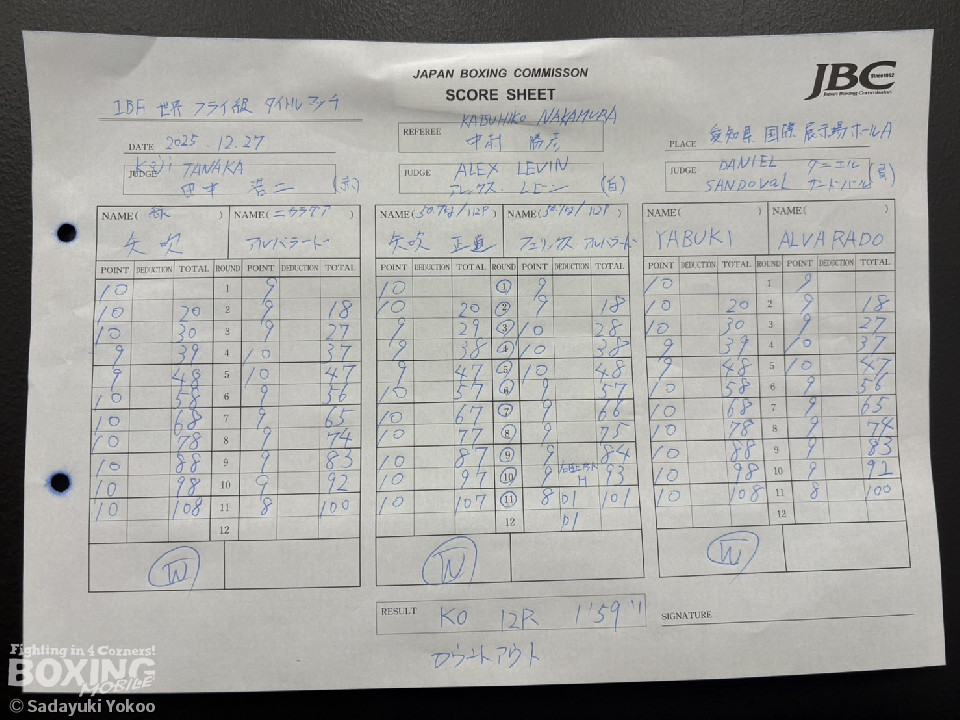 JAPAN BOXING COMMISSON
SCORE SHEET
JBC
Since1952
Japan Boxing Commission
IBF 世界 フライ級 タイトルマッチ
DATE 2025.12.27
REFEREE KATSUHIKO NAKAMURA
中村 勝彦
PLACE 愛知県国際展示場ホールA
JUDGE Koji TANAKA
田中 浩二 (赤)
JUDGE ALEX LEVIN
アレックス・レビン (白)
JUDGE DANIEL SANDOVAL
ダニエル サンドバル (青)
NAME( ) NAME(ニカラグア) NAME(50.7kg/112P) NAME( /112P) NAME( ) NAME( )
矢吹 アルバラード 矢吹 正道 フェリックス アルバラード YABUKI ALVARADO
POINT DEDUCTION TOTAL ROUND POINT DEDUCTION TOTAL POINT DEDUCTION TOTAL ROUND POINT DEDUCTION TOTAL POINT DEDUCTION TOTAL ROUND POINT DEDUCTION TOTAL
10 1 9 10 1 9 10 1 9
10 20 2 9 18 10 20 2 9 18 10 20 2 9 18
10 30 3 9 27 9 29 3 10 28 10 30 3 9 27
9 39 4 10 37 9 38 4 10 38 9 39 4 10 37
9 48 5 10 47 9 47 5 10 48 9 48 5 10 47
10 58 6 9 56 10 57 6 9 57 10 58 6 9 56
10 68 7 9 65 10 67 7 9 66 10 68 7 9 65
10 78 8 9 74 10 77 8 9 75 10 78 8 9 74
10 88 9 9 83 10 87 9 9 84 10 88 9 9 83
10 98 10 9 92 10 97 10 9 H 93 10 98 10 9 91
10 108 11 8 100 10 107 11 8 D1 101 10 108 11 8 100
12 12 D1 12
W W W
RESULT KO 12R 1'59"
SIGNATURE
カウントアウト
Fighting in 4 Corners!
BOXING
MOBILE
© Sadayuki Yokoo